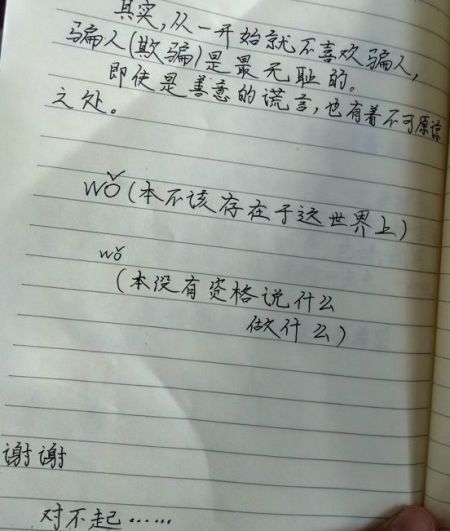 其实,从一开始就不喜欢骗人,
骗人(欺骗)是最无耻的。
即使是善意的谎言,也有着不可原谅
之处。
wǒ(本不该存在于这世界上)
wǒ
(本没有资格说什么
做什么)
谢谢
对不起……